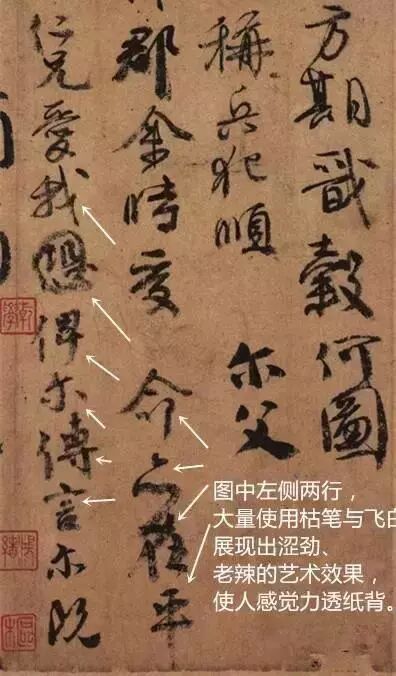 方期戩穀何圖
稱兵犯順 尔父
郡余時受命亦在平
仁兄愛我恐俾尔傳言尔既
图中左侧两行，
大量使用枯笔与飞白
展现出涩劲、
老辣的艺术效果，
使人感觉力透纸背。